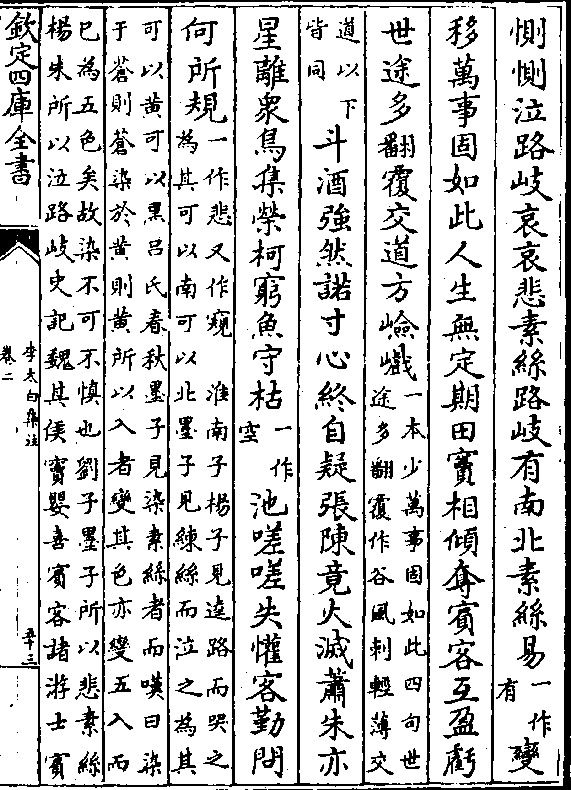 惻惻泣路岐哀哀悲素絲路岐有南北素絲易一作有變
移萬事固如此人生無定期田竇相傾奪賓客互盈虧
世途多翻覆交道方嶮巇一本少萬事固如此四句世途多翻覆作谷風刺輕薄交
道以下皆同斗酒強然諾寸心終自疑張陳竟火滅蕭朱亦
星離衆鳥集榮柯窮魚守枯一作空池嗟嗟失懽客勤問
何所規一作悲又作窺 淮南子楊子見逵路而哭之為其可以南可以北墨子見練絲而泣之為其
可以黃可以黑呂氏春秋墨子見染素絲者而嘆曰染于蒼則蒼染於黃則黃所以入者變其色亦變五入而
已為五色矣故染不可不慎也劉子墨子所以悲素絲楊朱所以泣路岐史記魏其侯竇嬰喜賓客諸游士賓
欽定四庫全書
李太白集注
卷二
五十三